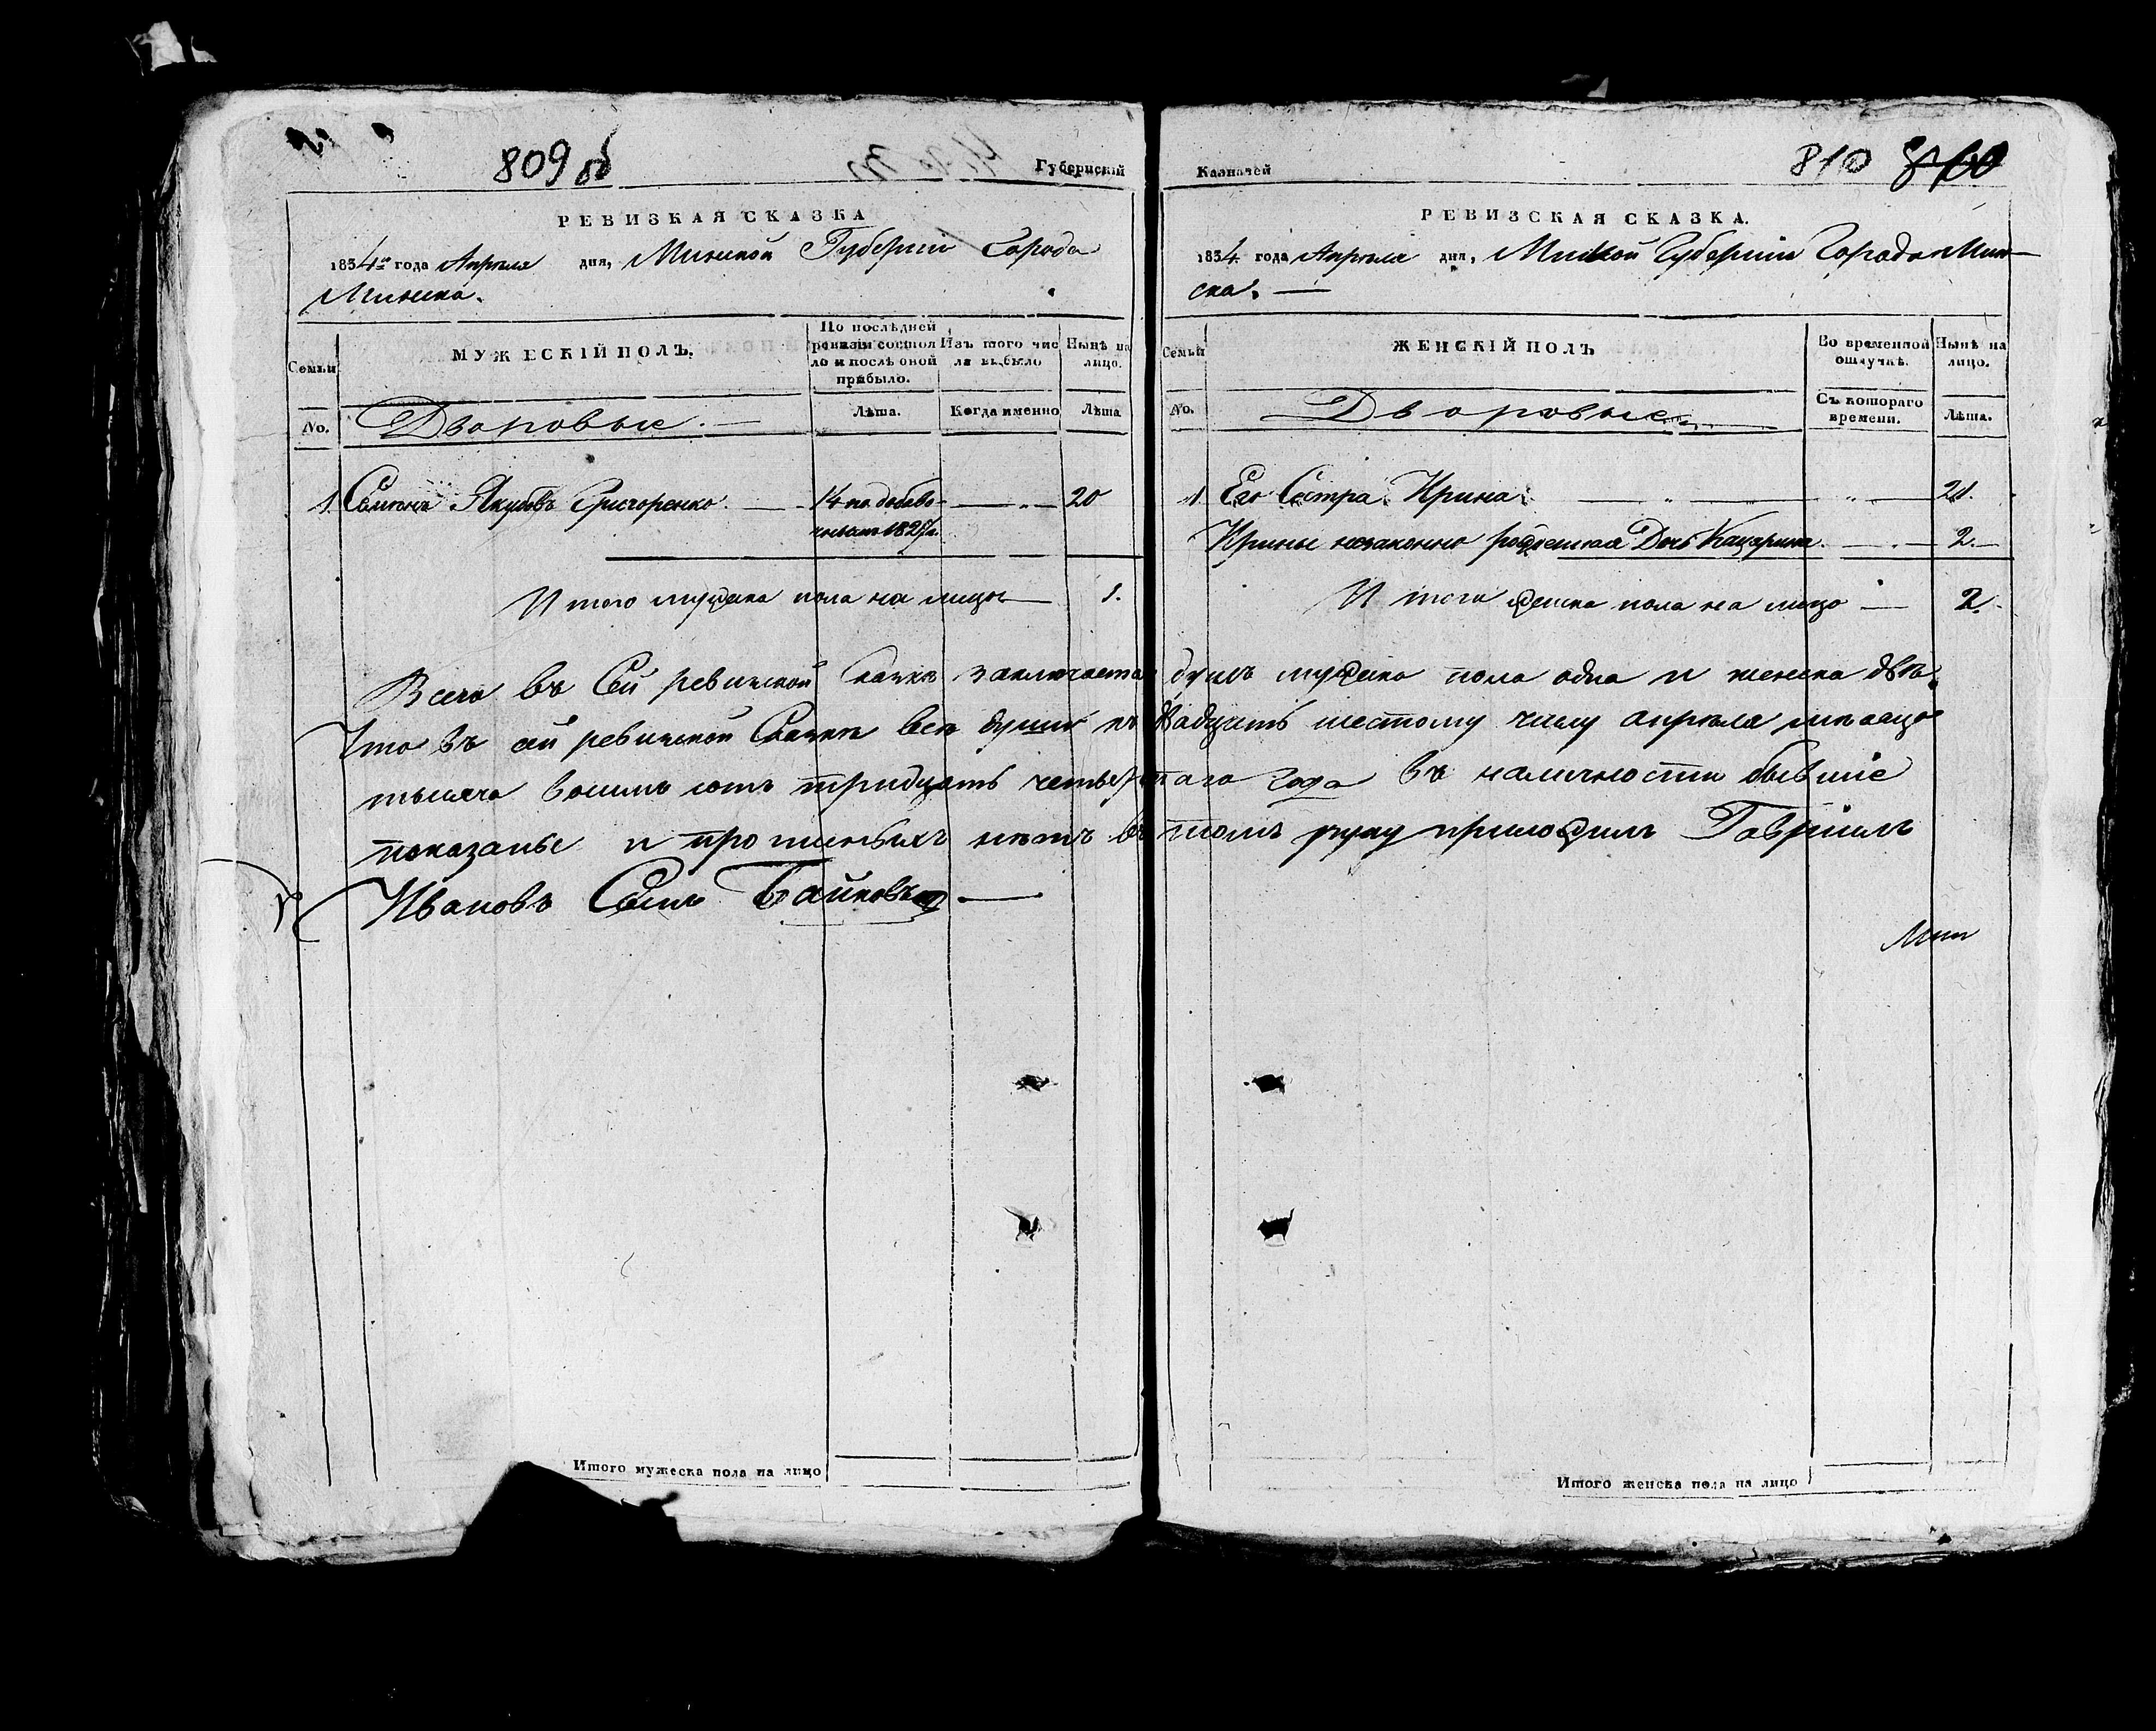 809 об
Губернскій
РЕВИЗКАЯ СКАЗКА
1834го года Апреля дня, Минской Губерніи Города
Минска.
Семьи
МУЖЕСКІЙ ПОЛЪ.
По послѣдней ревизіи состояло и послѣ оной прибыло.
Изъ того числа выбыло
Нынѣ на лицо.
No.
Дворовые.
Лѣта.
Когда именно
Лѣта
1 Семіонъ Якубовъ Григоренко. 14 по добаво- 20
1827
Итого мужеска пола на лицо 1.
Казначей
810 810
РЕВИЗСКАЯ СКАЗКА.
1834 года Апреля дня, Минской Губерніи Города Мин-
ска.
Семьи
ЖЕНСКІЙ ПОЛЪ
Во временной отлучкѣ.
Нынѣ на лицо.
No.
Дворовые
Съ котораго времени.
Лѣта.
1 Его Сестра Ирина. 21.
Ирины незаконно рожденная Дочь Кацярина. 2.
Итого женска пола на лицо 2.
Всего въ Сей ревизской сказкѣ заключается душъ мужеска пола одна и женска двѣ.
Что въ сей ревизской Сказкѣ все души къ двадцать шестому числу апреля мѣсяца
тысяча восимь сотъ тридцать четвертаго года въ наличности бывшіе
показаные и прописныхъ нѣтъ въ томъ руку приложилъ Гавріилъ
Ивановъ Сынъ Байковъ
Мин
Итого мужеска пола на лицо
Итого женска пола на лицо